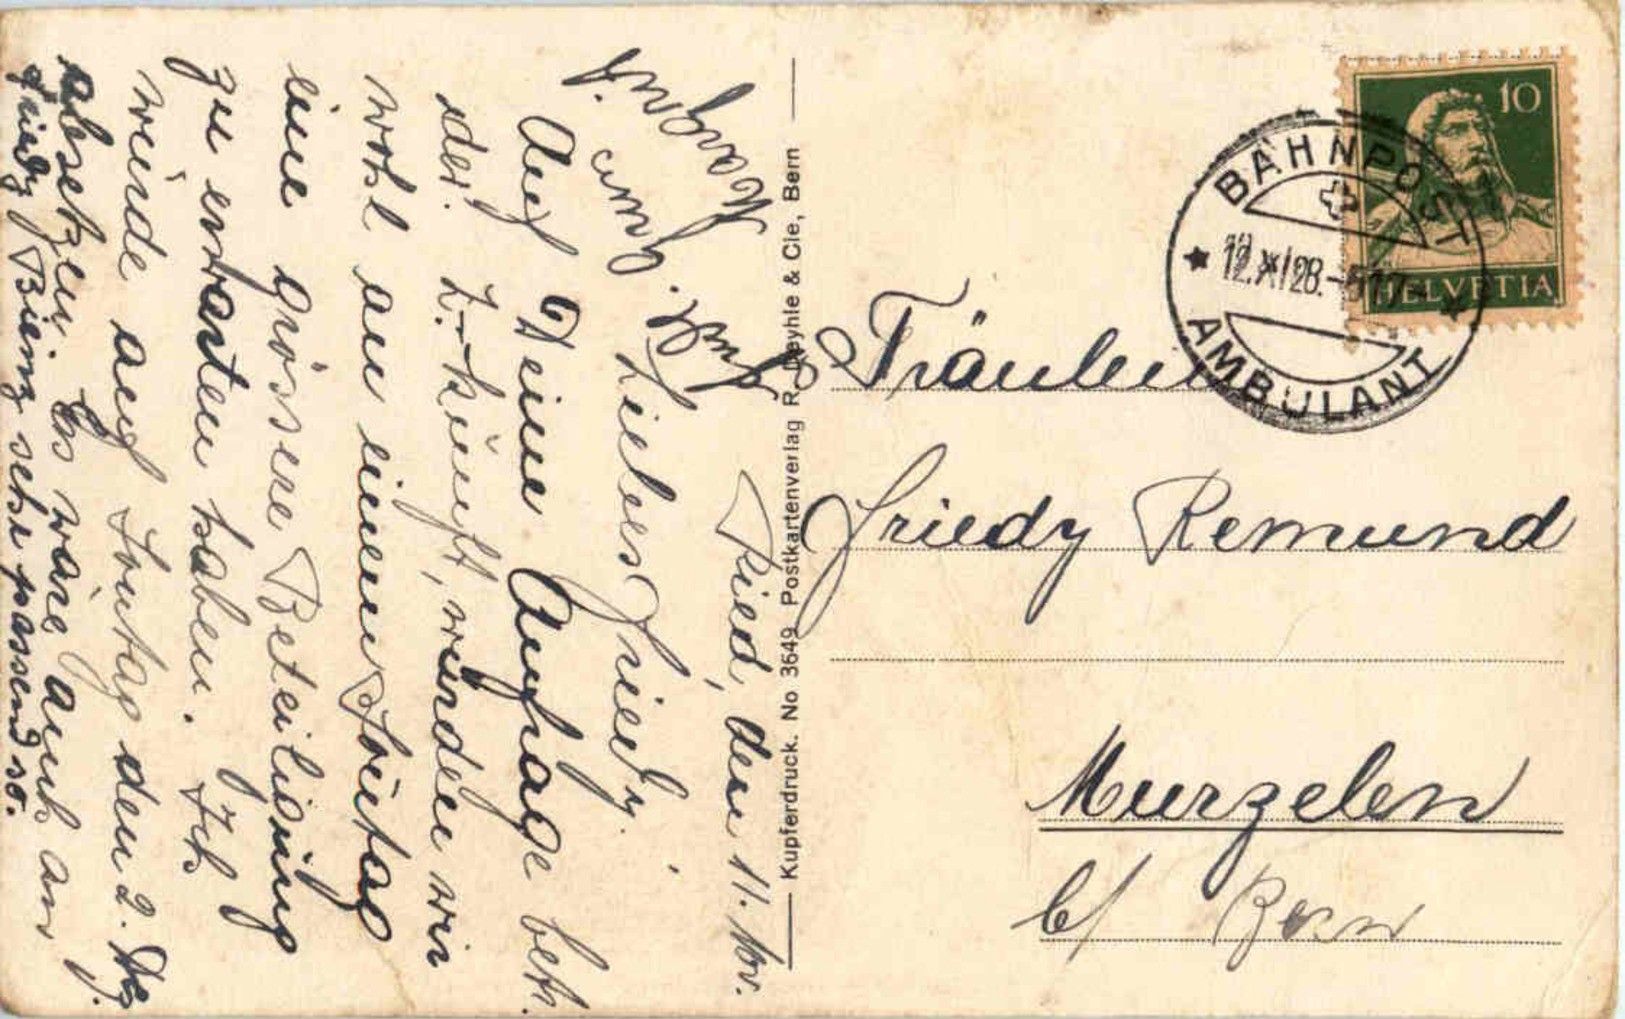 Ried, den 11. Nov.
Liebes Friedy.
Auf Deine Anfrage betr.
der. Z-kunft, würden wir
wohl an einem Sonntag
eine grössere Beteiligung
zu erwarten haben. Ich
würde auf Sonntag den 2. Dez
absetzen. Es wäre auch am
sehr passend so.
Gruss
Kupferdruck. No 3649 Postkartenverlag R. Deyhle & Cie, Bern
10
HELVETIA
BAHNPOST
12.XI 28.-517-
AMBULANT
Fräulein
Friedy Remund
Murzelen
b/ Bern